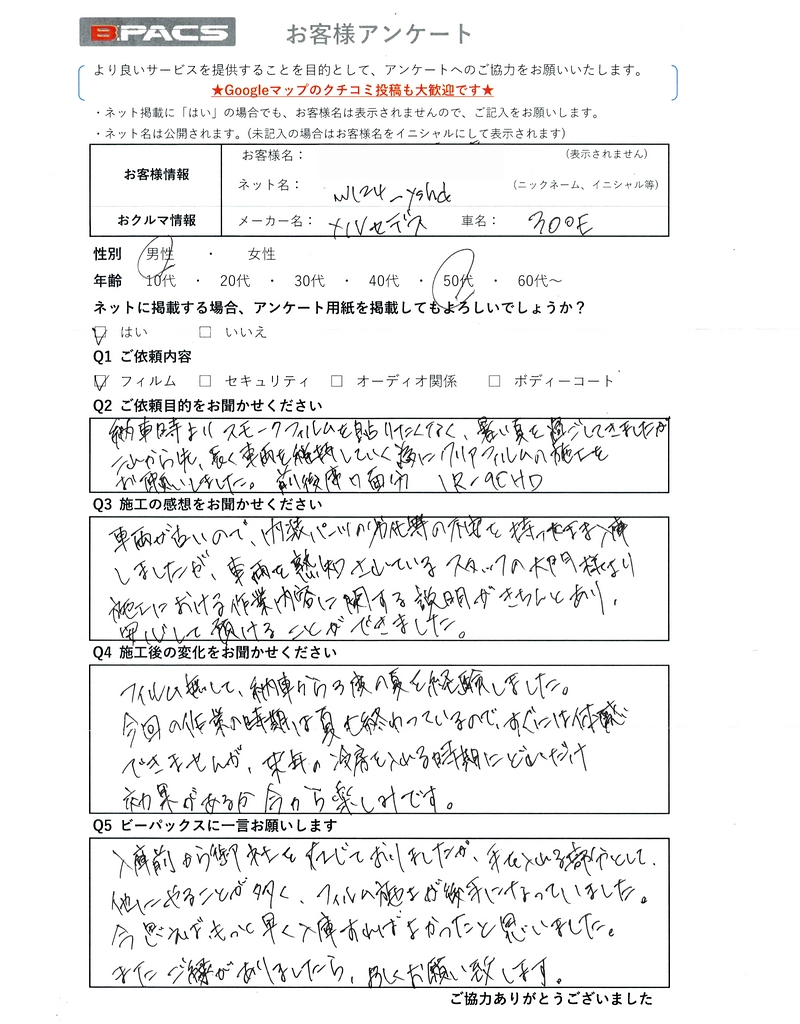 B-PACS お客様アンケート
より良いサービスを提供することを目的として、アンケートへのご協力をお願いいたします。
★Googleマップのクチコミ投稿も大歓迎です★
・ネット掲載に「はい」の場合でも、お客様名は表示されませんので、ご記入をお願します。
・ネット名は公開されます。(未記入の場合はお客様名をイニシャルにして表示されます)
お客様情報 お客様名： (表示されません)
ネット名： (ニックネーム、イニシャル等)
おクルマ情報 メーカー名： メルセデス 車名： 300E
性別 男性 ・ 女性
年齢 10代 ・ 20代 ・ 30代 ・ 40代 ・ 50代 ・ 60代～
ネットに掲載する場合、アンケート用紙を掲載してもよろしいでしょうか？
☑ はい □ いいえ
Q1 ご依頼内容
☑ フィルム □ セキュリティ □ オーディオ関係 □ ボディーコート
Q2 ご依頼目的をお聞かせください
納車時よりスモークフィルムを貼りたくなく、暑い夏を過ごしてきましたが
これから先、長く車両を維持していく為にクリアフィルムの施工を
お願いしました。前後席の面分 IR-90HD
Q3 施工の感想をお聞かせください
車両が古いので、内装パーツの劣化等の不安を持ったまま入庫
しましたが、車両を熟知されているスタッフの大門様より
施工における作業内容に関する説明がきちんとあり、
安心して預けることができました。
Q4 施工後の変化をお聞かせください
フィルム無しで、納車から3度の夏を経験しました。
今回の作業の時期は夏も終わっているので、すぐには体感
できませんが、来年の冷房を入れる時期にどれだけ
効果があるか今から楽しみです。
Q5 ビーパックスに一言お願いします
入庫前から御社を存じておりましたが、手を入れる部分として、
他にやることが多く、フィルムの施工が後手になっていました。
今思えばもっと早く入庫すればよかったと思いました。
またご縁がありましたら、宜しくお願い致します。
ご協力ありがとうございました